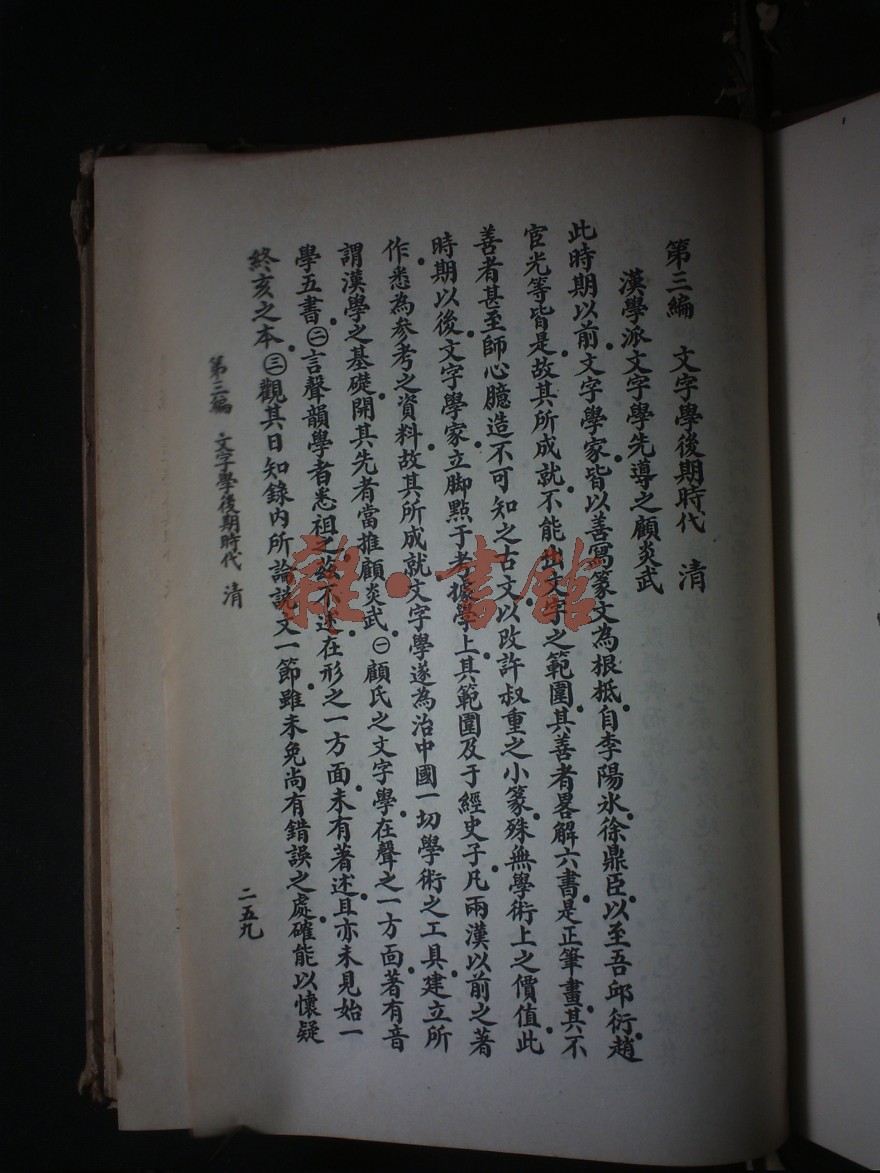 第三編　文字學後期時代　清
漢學派文字學先導之顧炎武
此時期以前文字學家皆以善寫篆文為根柢自李陽氷徐鼎臣以至吾邱衍趙
宧光等皆是故其所成就不能出文字之範圍其善者畧解六書是正筆畫其不
善者甚至師心臆造不可知之古文以改許叔重之小篆殊無學術上之價值此
時期以後文字學家立脚點于考據學上其範圍及于經史子凡兩漢以前之著
作悉為參考之資料故其所成就文字學遂為治中國一切學術之工具建立所
謂漢學之基礎開其先者當推顧炎武㊀顧氏之文字學在聲之一方面著有音
學五書㊁言聲韻學者悉祖之茲不述在形之一方面未有著述且亦未見始一
終亥之本㊂觀其日知錄內所論說文一節雖未免尚有錯誤之處確能以懷疑
第三編　文字學後期時代　清
二五九
雜·書館